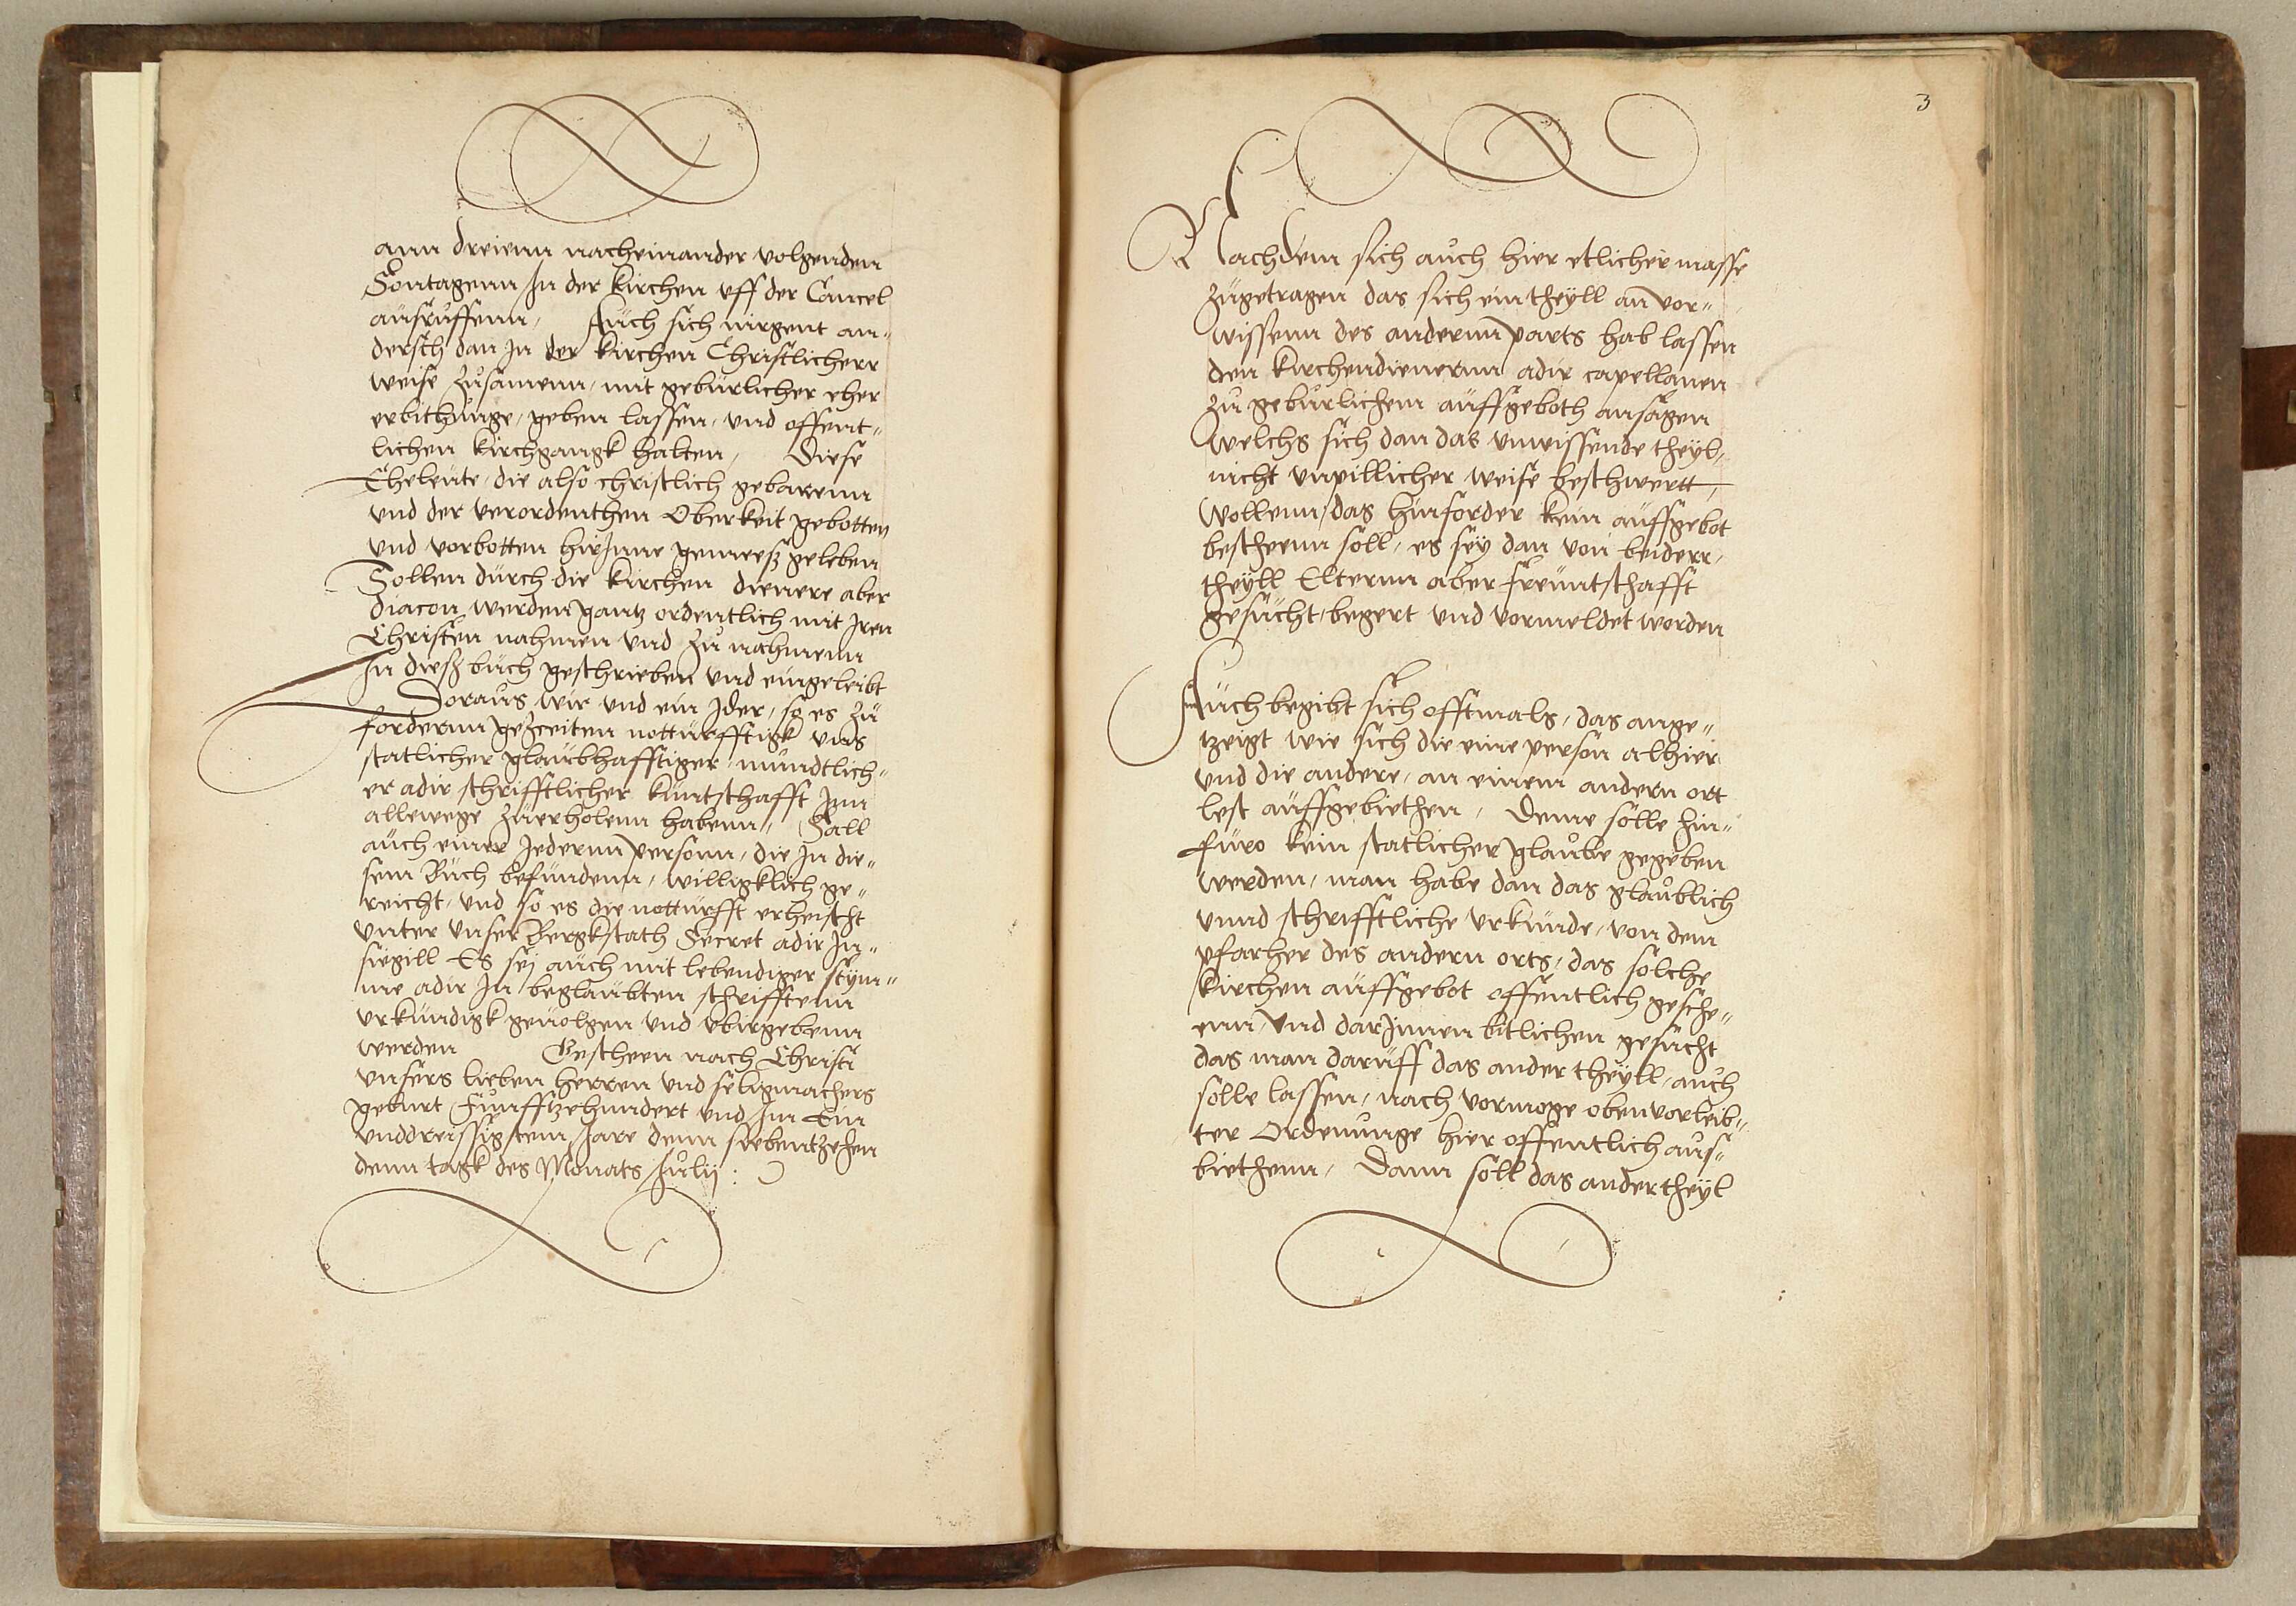 ann dreienn nacheinander volgenden
Sontagenn In der kirchen vff der Cancel
ausruffenn, Auch sich nirgent an„
dersth dan In der kirchen Christlicherr
weise zusamenn, mit geburlicher eher
erbithunge, geben lassen, vnd offent„
lichen kirchgangk halten, Diese
Eheleute, die also christlich gebarenn
vnd der verordenthen Oberkeit gebotten
vnd vorbotten hirInne gemeesz geleben
Sollen durch die kirchen dienere aber
diacon, werden gantz ordentlich mit Iren
Christen nahmen vnd zu nahmenn
In diesz buch geschrieben vnd eingeleibt
Doraus wir vnd ein Ider, so es zu
fordernn gezceiten notturfftigk vnd
statlicher glaubhafftiger, mundtlich„
er adir schrifftlicher kuntschafft Inn
allewege zuerholenn habenn, Sall
auch einer Iedernn personn, die In die„
sem Buch befundenn, willigklich ge„
reicht, vnd so es die notturfft erheischt
vnter vnser Bergkstath Secret adir In„
siegill Es sej auch mit lebendiger stym„
me adir In beglaubten schrifftenn
vrkundigk geuolgen vnd vbirgebenn
werden Gescheen nach Christi
vnsers lieben herren vnd seligmachers
geburt Funfftzehundert vnd Im Ein
vnddreissigstenn Jare denn siebentzehen
denn tagk des Monats Julij :
3
Nachdem sich auch hier etlicher masse
zugetragen das sich ein theyll an vor„
wissenn des andernn parts hab lassen
den kirchendienernn adir capellanen
zu geburlichem auffgeboth ansagen
welchs sich dan das vnwissende theyl,
nicht vnpillicher weise beschwertt,
Wollenn, das hinforder kein auffgebot
bescheenn soll, es sey dan von beiderr,
theyll Elternn aber freuntschafft
gesucht, begert vnd vormeldet worden
Auch begibt sich offtmals, das ange„
tzeigt wie sich die eine person alhier
vnd die andere, an einem andern ort
lest auffgebiethen, Deme solle hin„
furo kein statlicher glaube gegeben
werden, man habe dan das glaublich
vnnd schrifftliche vrkunde, von dem
pfarher des andern orts, das solche
kirchen auffgebot offentlich gesche„
enn, vnd darInnen bitlichen gesucht
das man daruff das ander theyll, auch
solle lassen, nach vormoge obenvorleib„
ter Ordenunge hier offentlich auf„
biethenn, Dann soll das ander theyl